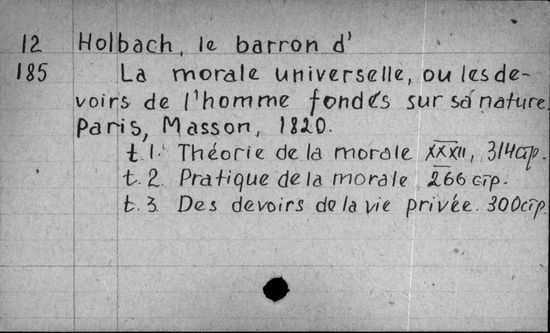 12 Holbach, le barron d'
185 La morale universelle, ou les de-
voirs de l'homme fondés sur sa nature.
Paris, Masson, 1820.
t. 1. Théorie de la morale XXXII, 314 стр.
t. 2. Pratique de la morale 266 стр.
t. 3. Des devoirs de la vie privée. 300 стр.